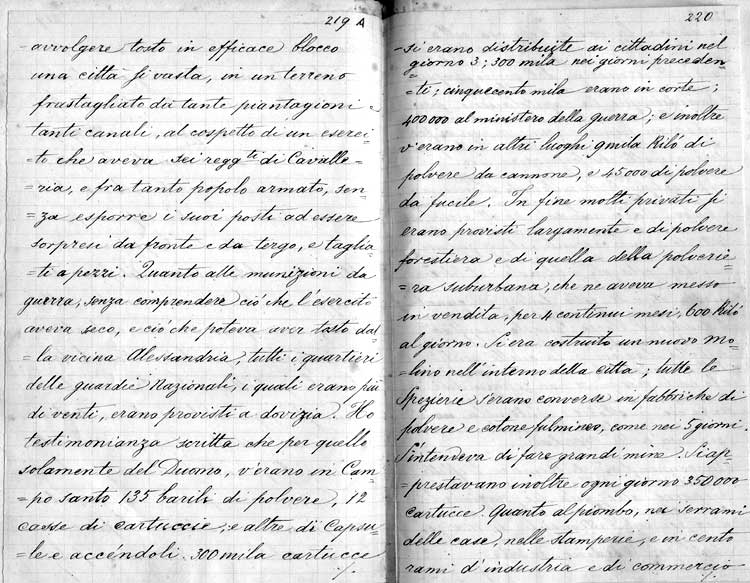 219 A
avvolgere tosto in efficace blocco
una città sì vasta, in un terreno
frastagliato da tante piantagioni =
tanti canali, al cospetto di un eserci-
=to che aveva sei regg.ti di Cavalle-
=ria, e fra tanto popolo armato, sen-
=za esporre i suoi posti ad essere
sorpresi da fronte e da tergo, e taglia-
=ti a pezzi. Quanto alle munizioni da
guerra, senza comprendere ciò che l'esercito
aveva seco, e ciò che poteva aver tosto dal-
=la vicina Alessandria, tutti i quartieri
delle guardie Nazionali, i quali erano più
di venti, erano provisti a dovizia. Ho
testimonianza scritta che per quello
solamente del Duomo, v'erano in Cam-
=po santo 135 barili di polvere, 12
casse di cartuccie, e altre di Capsu-
=le e accéndoli. 300 mila cartucce
220
-si erano distribuite ai cittadini nel
giorno 3; 300 mila nei giorni preceden-
=ti; cinquecento mila erano in corte;
400000 al ministero della guerra; e inoltre
v'erano in altri luoghi 9 mila Kilò di
polvere da cannone, e 45000 di polvere
da fucile. In fine molti privati si
erano provisti largamente e di polvere
forestiera e di quella della polverie-
=ra suburbana, che ne aveva messo
in vendita, per 4 continui mesi, 600 Kilò
al giorno. Si era costruito un nuovo mo-
=lino nell'interno della città; tutte le
Spezierie s'erano converse in fabbriche di
polvere e cotone fulmineo, come nei 5 giorni.
S'intendeva di fare grandi mine. Si ap-
=prestavano inoltre ogni giorno 350000
cartucce. Quanto al piombo, nei serrami
delle case, nelle stamperie, e in cento
rami d'industria e di commercio